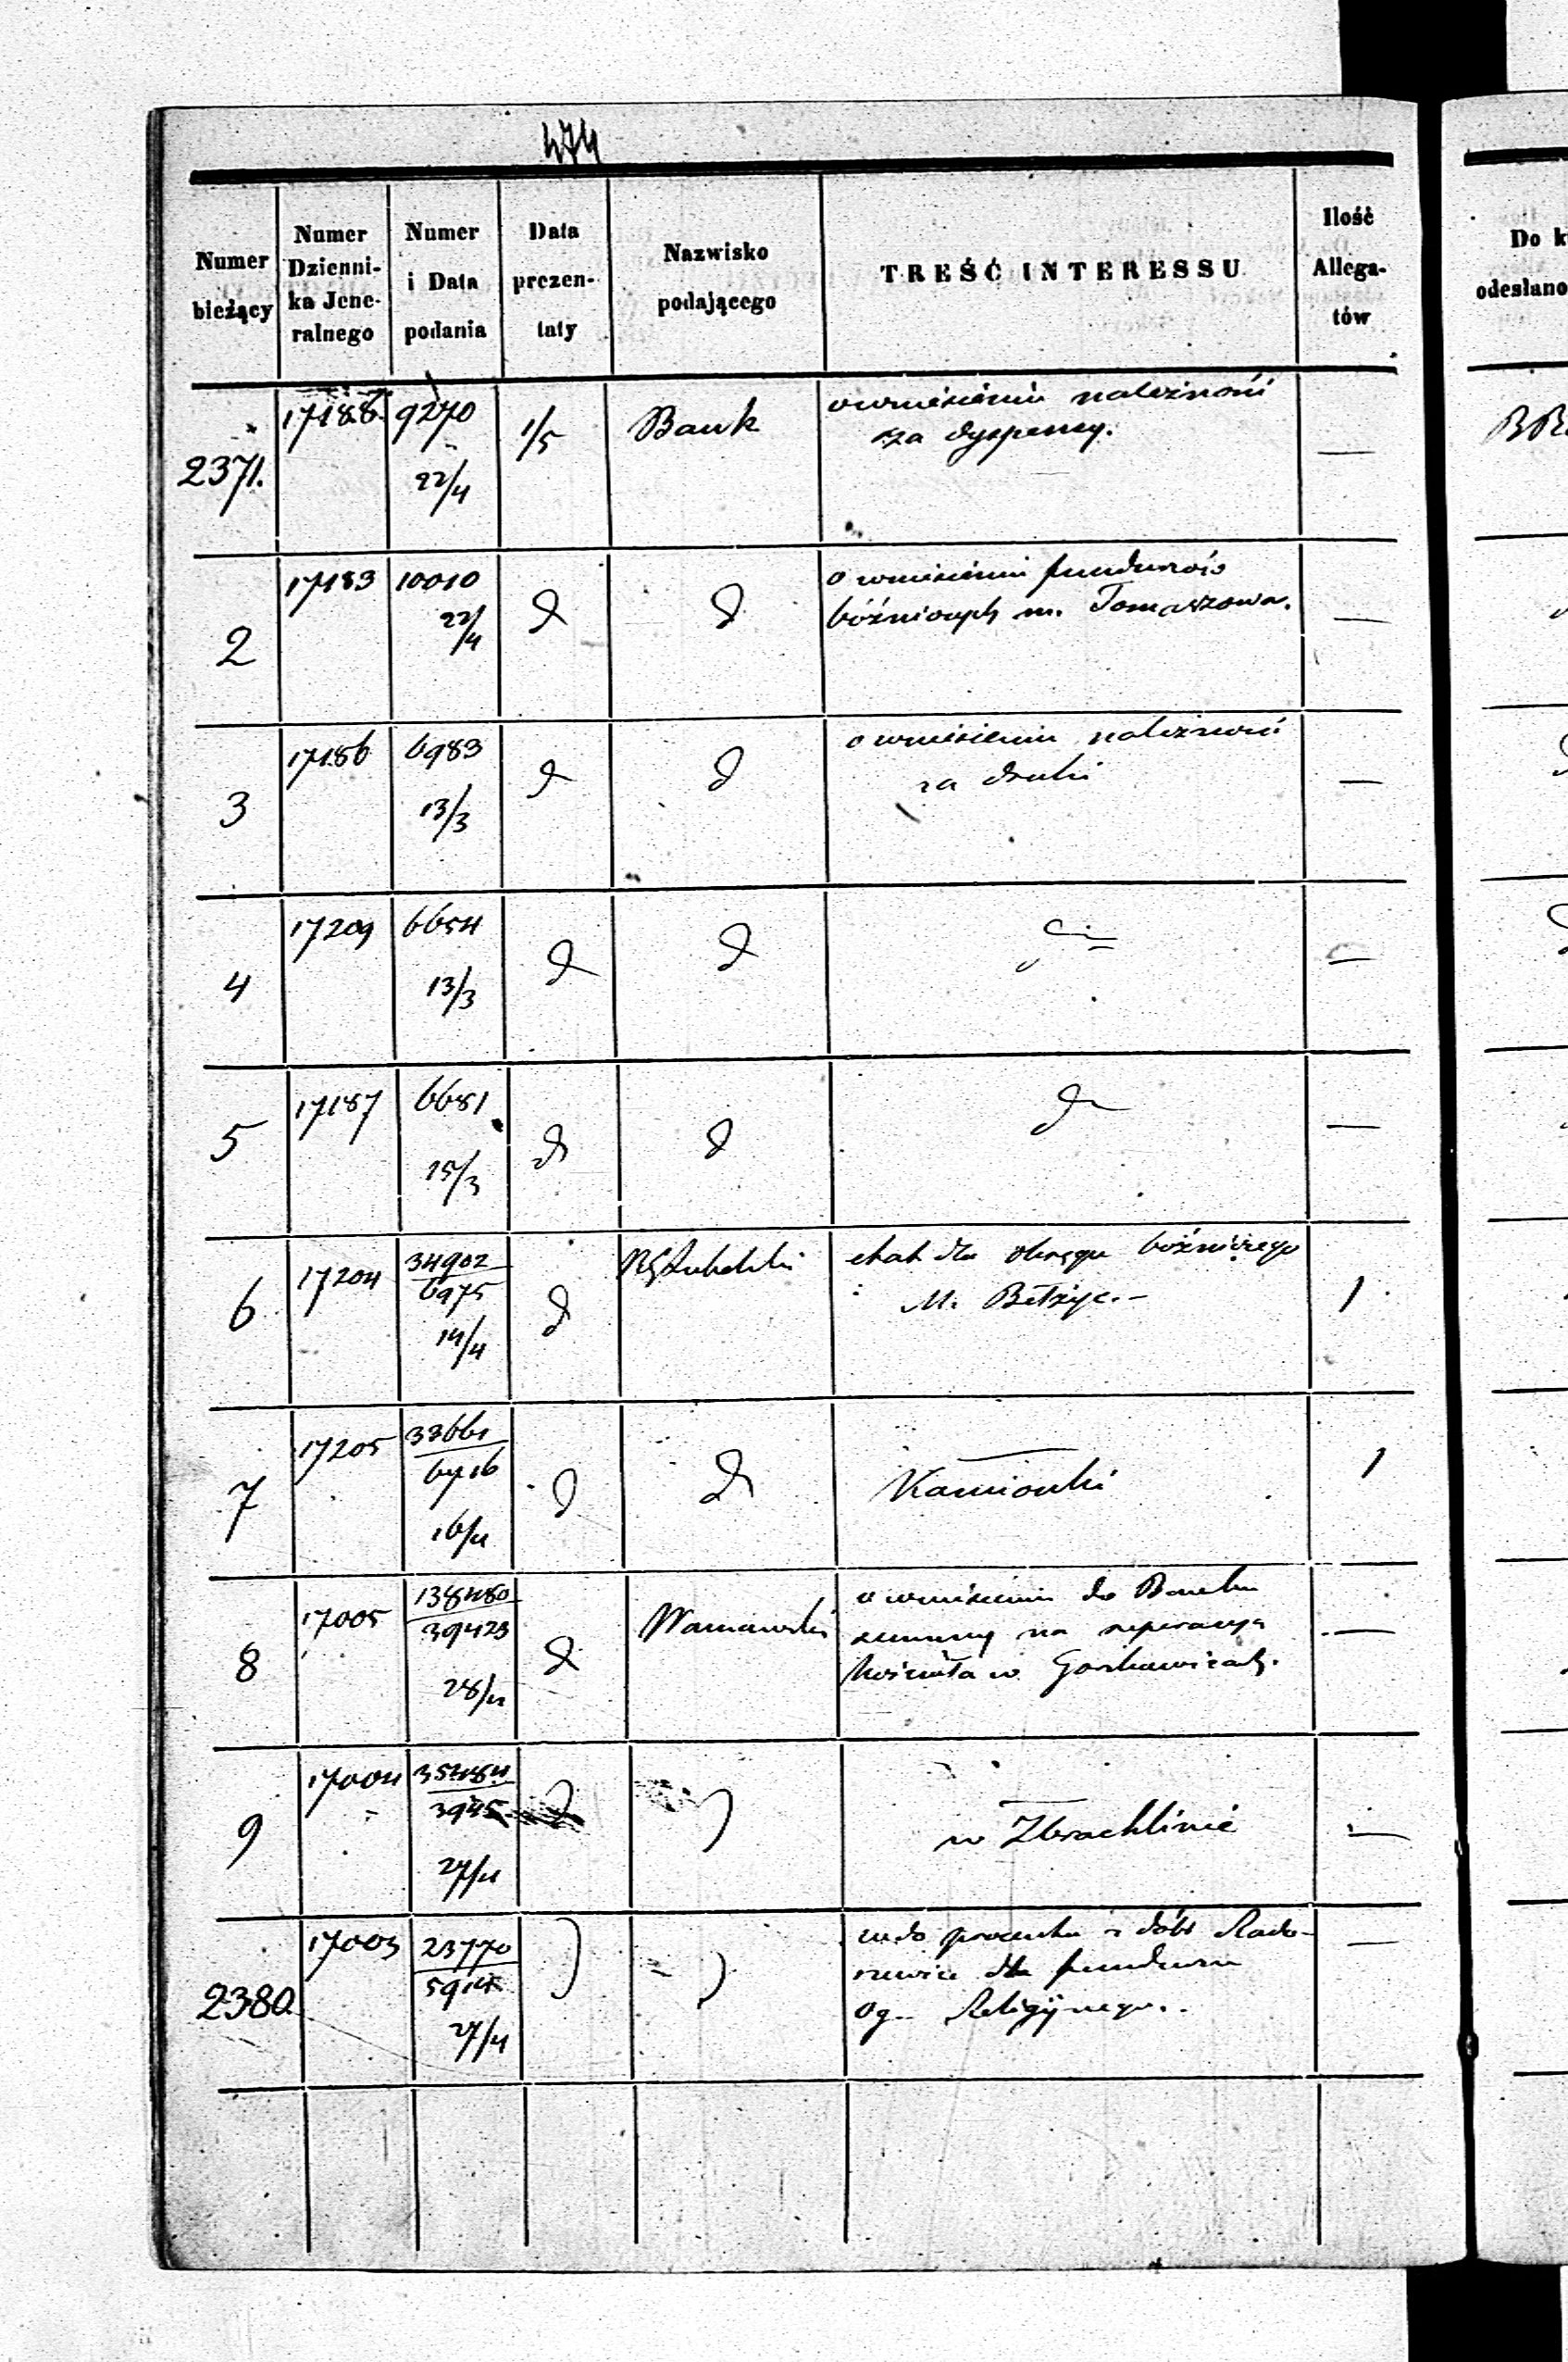 474
Numer bieżący
Numer Dzienni-
ka Jene-
ralnego
Numer i Data podania
Data prezen-
taty
Nazwisko podającego
TREŚĆ INTERESSU
Ilość Allega-
tów
Do k
odesłano
2371. 17188. 9270 22/4 1/5 Bank o wniesieniu należności —
za dyspensy.
2 17183 10010 22/4 d d o wniesieniu funduszów —
bóżniczych m. Tomaszowa.
3 17186 6983 13/3 d d o wniesieniu należności —
za druki
4 17209 6654 13/3 d d —
5 17187 6681 15/3 d d d —
6 17204 34902 6975 14/4 d RGLubelski etat dla okręgu bóżniczego 1
M. Bełżyc. –
7 17205 33661 16/4 d d Kamionki 1
8 17005 138480 39423 28/4 d Warszawski o wniesieniu do Banku —
summy na reperacyą
kościoła w
9 17004 35484 27/4 d w Zbrachlinie —
2380. 17003 23770 27/4 procentu z dóbr Rado- —
szewice dla funduszu
Og. Religijnego.